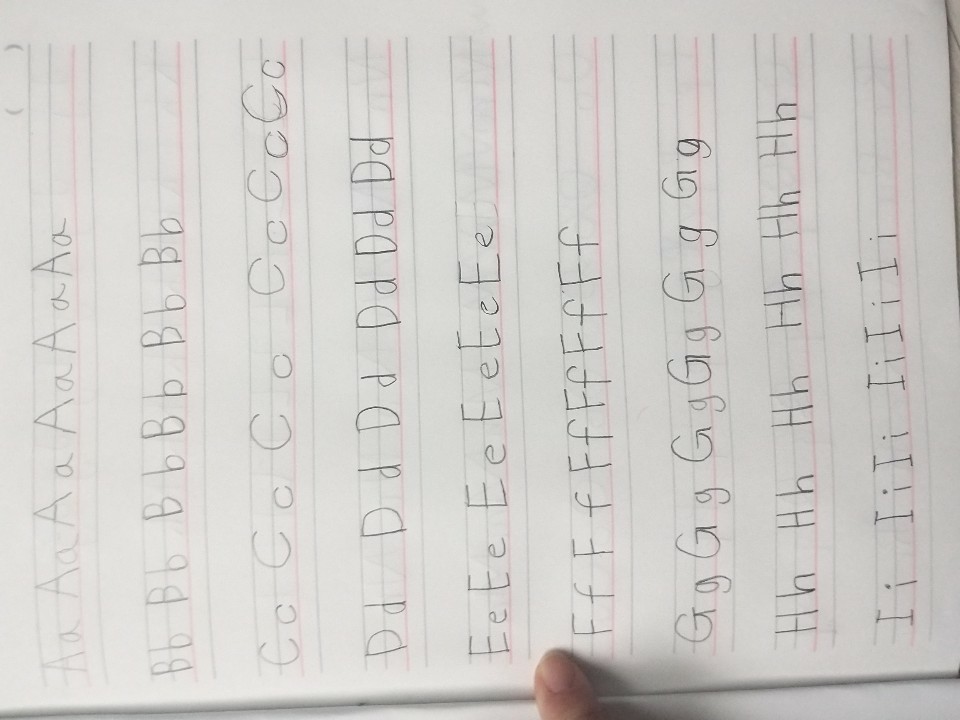 ( )
Aa Aa A a Aa A a Aa
Bb Bb B b Bp Bb Bb
Cc C c C c C c Cc Cc
Dd D d D d Dd Dd Dd
Ee Ee Ee Ee Ee Ee
Ff F f Ff Ff Ff Ff
Gg G g G g Gg G g Gg
Hh Hh Hh Hh Hh Hh
I i Ii Ii Ii Ii Ii